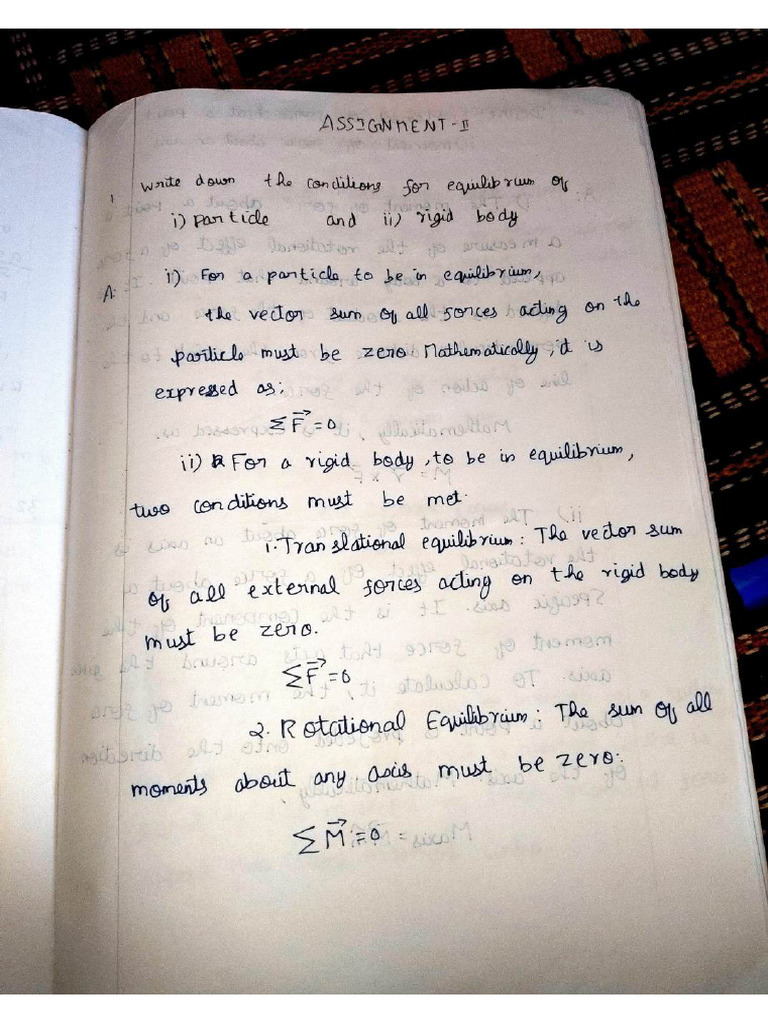 ASSIGNMENT-II
1 Write down the conditions for equilibrium of
i) particle and ii) rigid body
A: i) For a particle to be in equilibrium,
the vector sum of all forces acting on the
particle must be zero Mathematically, it is
expressed as;
Σ F⃗ = 0
ii) For a rigid body, to be in equilibrium,
two conditions must be met.
1. Translational equilibrium: The vector sum
of all external forces acting on the rigid body
must be zero.
Σ F⃗ = 0
2. Rotational Equilibrium: The sum of all
moments about any axis must be zero:
Σ M⃗ = 0